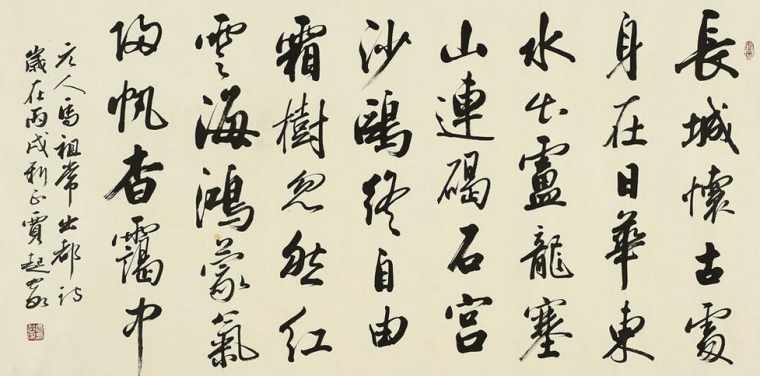 長城懷古處
身在日華東
水出盧龍塞
山連碣石宮
沙鷗終自由
霜樹忽然紅
雲海鴻蒙氣
歸帆杳靄中
元人馬祖常出都詩
歲在丙戌新正賈起家